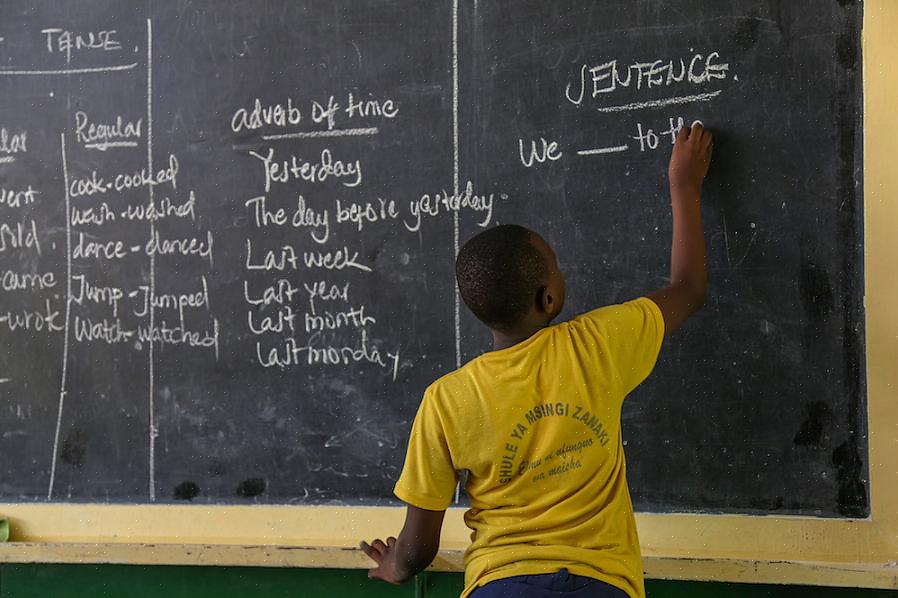 TENSE.
Regular
cook-cooked
wash-washed
dance-danced
Jump-Jumped
Watch-watched
adverb of time
Yesterday
The day before yesterday.
Last week
Last year
Last month
last monday
SENTENCE.
We ___ to the
SHULE YA MSINGI ZANAKI
Elimu ni ufunguo
wa maisha